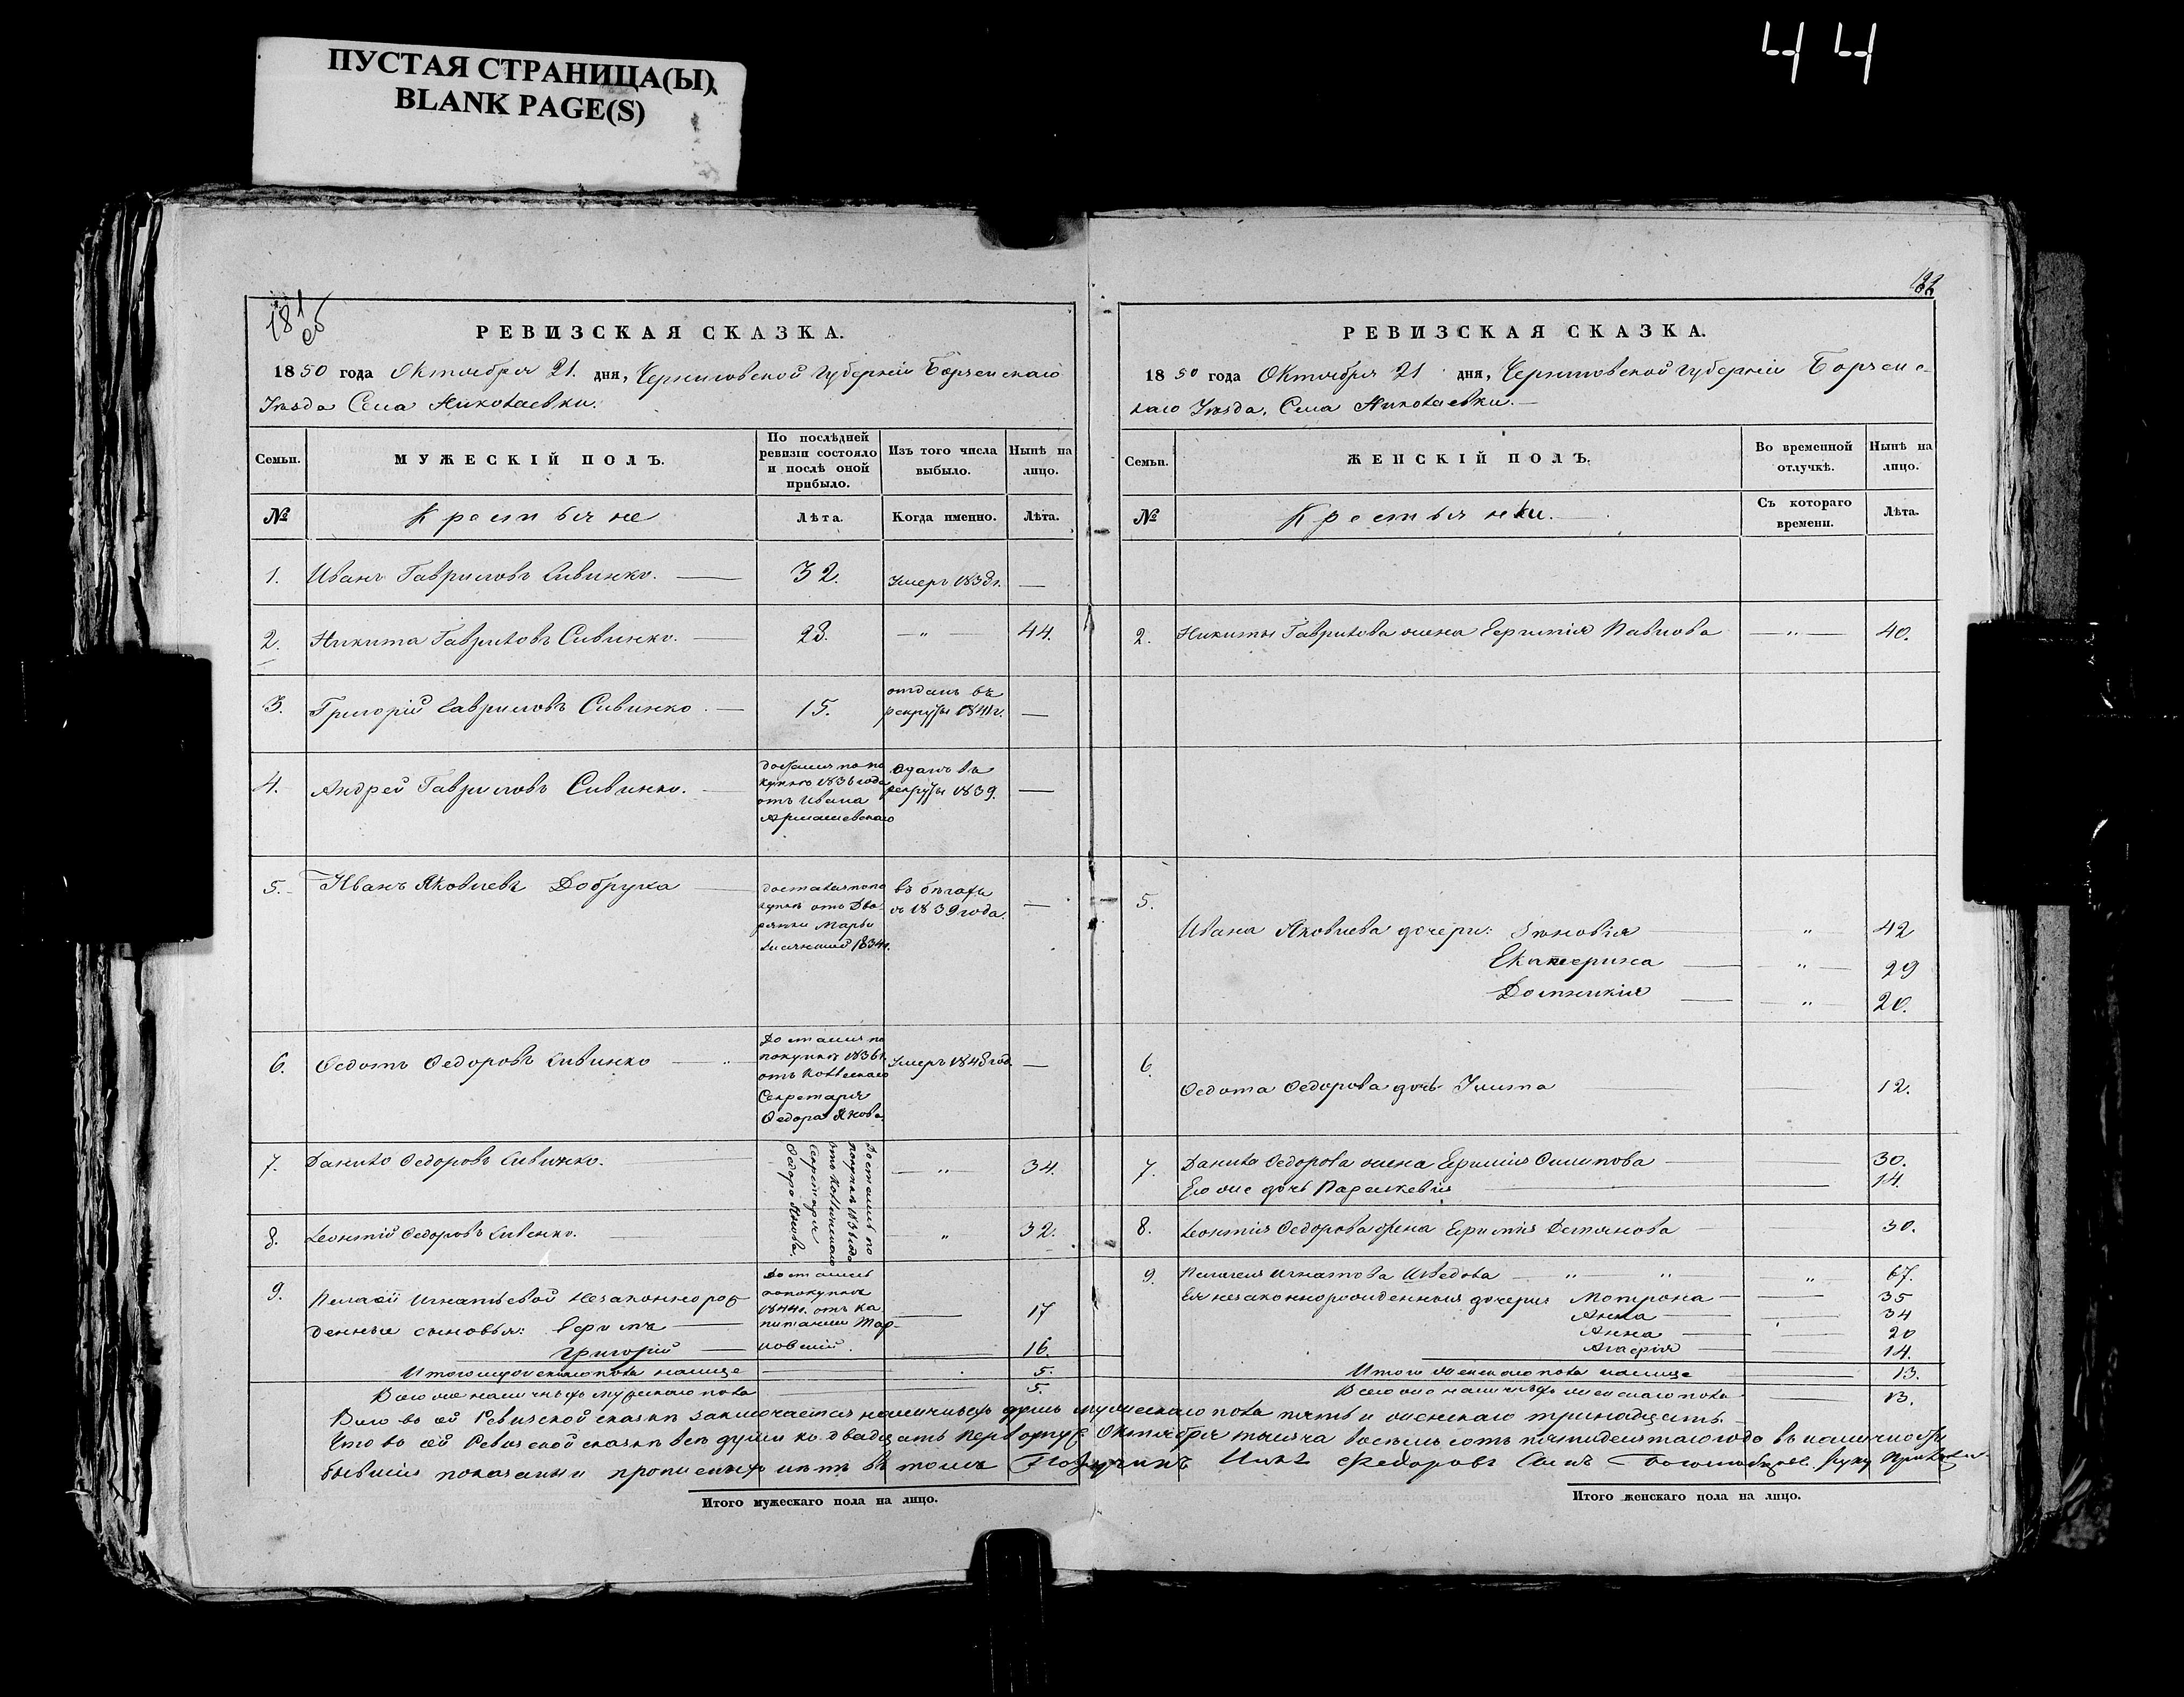 ПУСТАЯ СТРАНИЦА(Ы)
BLANK PAGE(S)
44
181
об
РЕВИЗСКАЯ СКАЗКА.
1850 года Октября 21. дня, Черниговской Губерніи Борзенскаго
Уѣзда Села Николаевки.
Семьи.
МУЖЕСКІЙ ПОЛЪ.
По послѣдней ревизіи состояло и послѣ оной прибыло.
Изъ того числа выбыло.
Нынѣ на лицо.
№
Крестьяне
Лѣта.
Когда именно.
Лѣта.
1. Иванъ Гавриловъ Сивинко. 32. Умеръ 1838г. —
2. Никита Гавриловъ Сивинко. 28. — „ 44.
3. Григорій Гавриловъ Сивинко. 15. отданъ въ
рекруты 1841г. —
4. Андрей Гавриловъ Сивинко. —
достался по по
купкѣ 1836 года
отъ Ивана
Армашевскаго
Отданъ въ
рекруты 1839.
5. Иванъ Яковлевъ Добруха —
достался по по
купкѣ от Дво
рянки Марьи
1834г.
въ бѣгахъ
съ 1839 года.
6. Федотъ Федоровъ Сивинко —
Достался по
покупкѣ 1836г.
отъ Коллежскаго
Секретаря
Федора Якова
Умеръ 1848 год.
7. Данило Федоровъ Сивинко. — „ 34.
8. Леонтій Федоровъ Сивенко. „ 32.
Достались по
покупкѣ 1836 года
отъ Коллежскаго
Секретаря
Федора Якова.
9. Пелагіи Игнатьевой незаконнорож
денные сыновья: Ефимъ — 17
Григорій — 16.
Достались
по покупкѣ
1844г. отъ Ка
питанши Тар-
новской.
Итого мужескаго пола на лице 5.
Всего же наличныхъ мужескаго пола 5.
РЕВИЗСКАЯ СКАЗКА.
1850 года Октября 21 дня, Черниговской губерніи Борзенс-
каго Уѣзда, Села Николаевки.—
Семьи.
ЖЕНСКІЙ ПОЛЪ.
Во временной отлучкѣ.
Нынѣ на лицо.
№
Крестьянки.
Съ котораго времени.
Лѣта.
2. Никиты Гаврилова жена Ефимія Павлова — „ — 40.
5.
Ивана Яковлева дочери: Зѣновія „ 42
Екатерина — „ — 29
Домникія — „ — 20.
6.
Федота Федорова дочь Улита 12.
7. Данила Федорова жена Ефимія Осипова — 30.
Его же дочь Параскевія 14.
8. Леонтія Федорова жена Ефимія Демянова 30.
9. Пелагея Игнатова Шведова — „ — „ „ 67.
Ея незаконнорожденныя дочери Мотрона — 35
Анна — 34
Анна — 20
Агафія — 14.
Итого женскаго пола на лице 13.
Всего же наличныхъ женскаго пола 13.
Всего въ сей Ревизской сказкѣ заключается наличныхъ душъ мужескаго пола пять и женскаго тринадцать.—
Что въ сей Ревизской сказкѣ всѣ души ко двадцать первому Октября тысяча восемь сотъ пятидесятаго года въ наличности
бывшія показаны и прописныхъ нѣтъ въ томъ Федоровъ Сынъ руку
Итого мужескаго пола на лицо.
Итого женскаго пола на лицо.